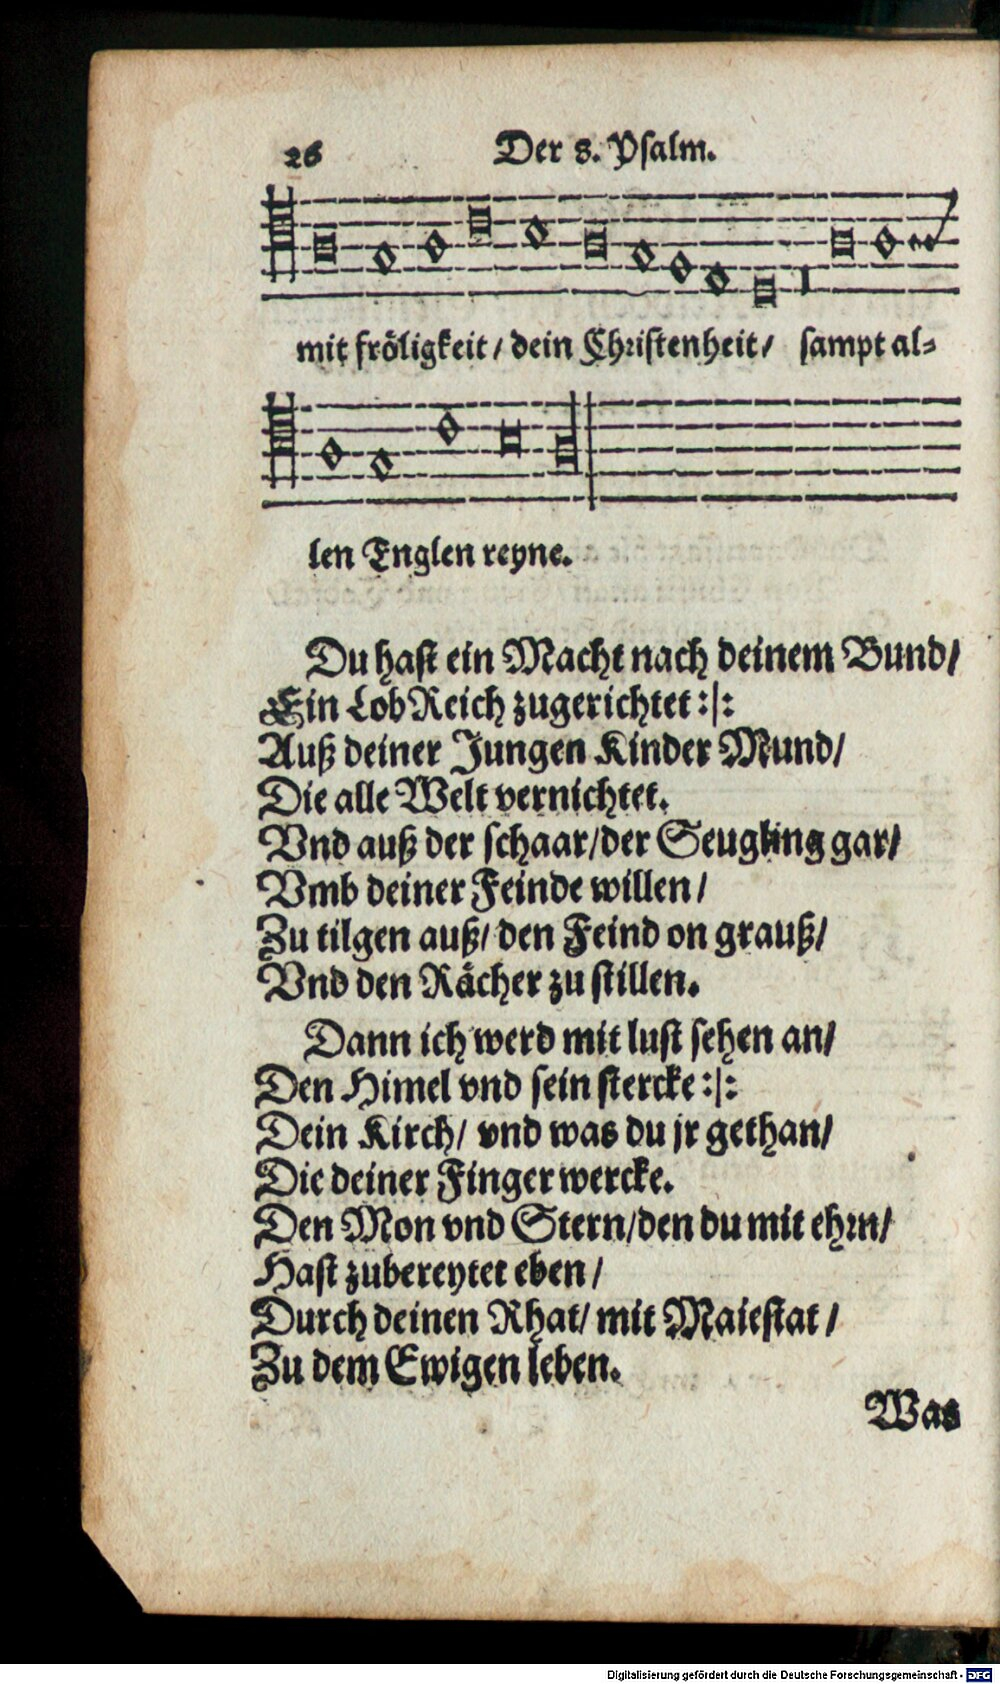 26 Der 8. Psalm.
mit fröligkeit / dein Christenheit / sampt al-
len Englen reyne.
Du hast ein Macht nach deinem Bund /
Ein Lob Reich zugerichtet :|:
Auß deiner Jungen Kinder Mund /
Die alle Welt vernichtet.
Vnd auß der schaar / der Seugling gar /
Vmb deiner Feinde willen /
Zu tilgen auß / den Feind on grauß /
Vnd den Rächer zu stillen.
Dann ich werd mit lust sehen an /
Den Himel vnd sein stercke :|:
Dein Kirch / vnd was du jr gethan /
Die deiner Finger wercke.
Den Mon vnd Stern / den du mit ehrn /
Hast zubereytet eben /
Durch deinen Rhat / mit Maiestat /
Zu dem Ewigen leben.
Was
Digitalisierung gefördert durch die Deutsche Forschungsgemeinschaft - DFG